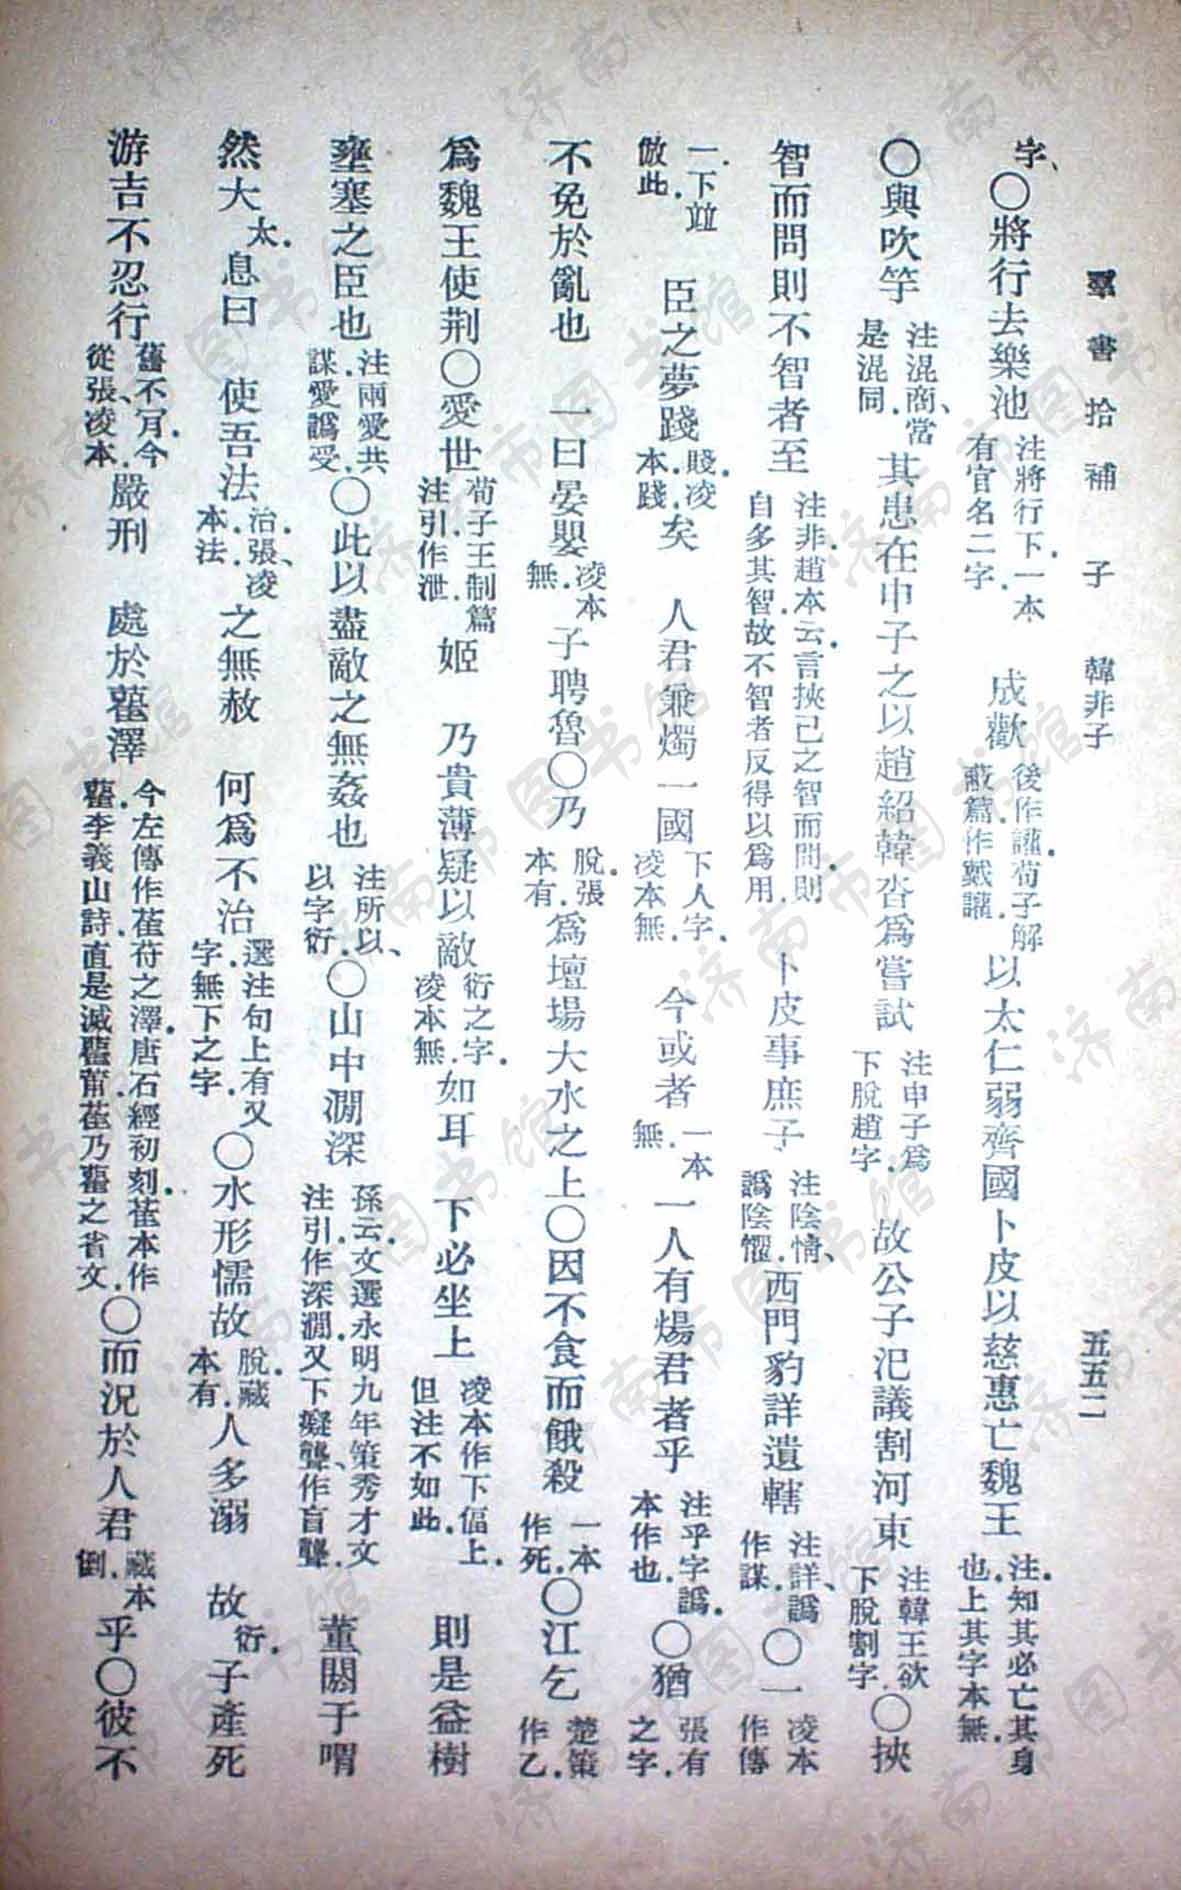 羣書拾補 子 韓非子 五五二
字、○將行去樂池注將行下.一本有官名二字. 成歡後作讙.荀子解蔽篇.作戴讙.以太仁弱齊國卜皮以慈惠亡魏王注.知其必亡其身也.上其字本無.
○與吹竽注混商、當是混同.其患在申子之以趙紹韓沓爲嘗試注申子爲下脫趙字. 故公子汜議割河東注韓王欲下脫割字.○挾
智而問則不智者至注非.趙本云.言挾己之智而問.則自多其智.故不智者反得以爲用.卜皮事庶子注陰情、譌陰懼.西門豹詳遺轄注詳、譌作謀.○一凌本作傳
一.下竝倣此. 臣之夢踐賤.凌本.踐.矣 人君兼燭一國下人字.凌本無. 今或者一本無.一人有煬君者乎注乎字譌.本作也.○猶張有之字.
不免於亂也 一曰晏嬰凌本無.子聘魯○乃脫.張本有.爲壇場大水之上○因不食而餓殺一本作死.○江乞楚策作乙.
爲魏王使荆○愛世荀子王制篇注引作泄.姬 乃貴薄疑以敵衍之字.凌本無.如耳 下必坐上凌本作下偪上.但注不如此. 則是益樹
壅塞之臣也注兩愛共謀.愛譌受.○此以盡敵之無姦也注所以、以字衍.○山中澗深孫云.文選永明九年策秀才文注引作深澗.又下癡聾、作盲聾. 董閼于喟
然大太.息曰 使吾法治.張、凌本.法.之無赦 何爲不治選注句上有又字.無下之字.○水形懦故脫.藏本有.人多溺 故衍.子產死
游吉不忍行舊不肎.今從張、凌本.嚴刑 處於雚澤今左傳作萑苻之澤.唐石經初刻.萑本作雚.李義山詩.直是滅雚莆.萑乃雚之省文.○而況於人君藏本倒.乎○彼不